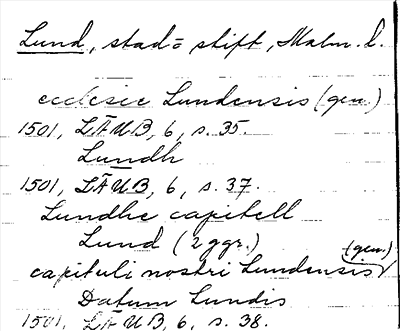 Lund, stad o stift, Malm. l.
ecclesie Lundensis (gen.)
1501, LÄUB, 6, s. 35.
Lundh
1501, LÄUB, 6, s. 37.
Lundhe capitell
Lund (2 ggr.)
capituli nostri Lundensis (gen.)
Datum Lundis
1501, LÄUB, 6, s. 38.